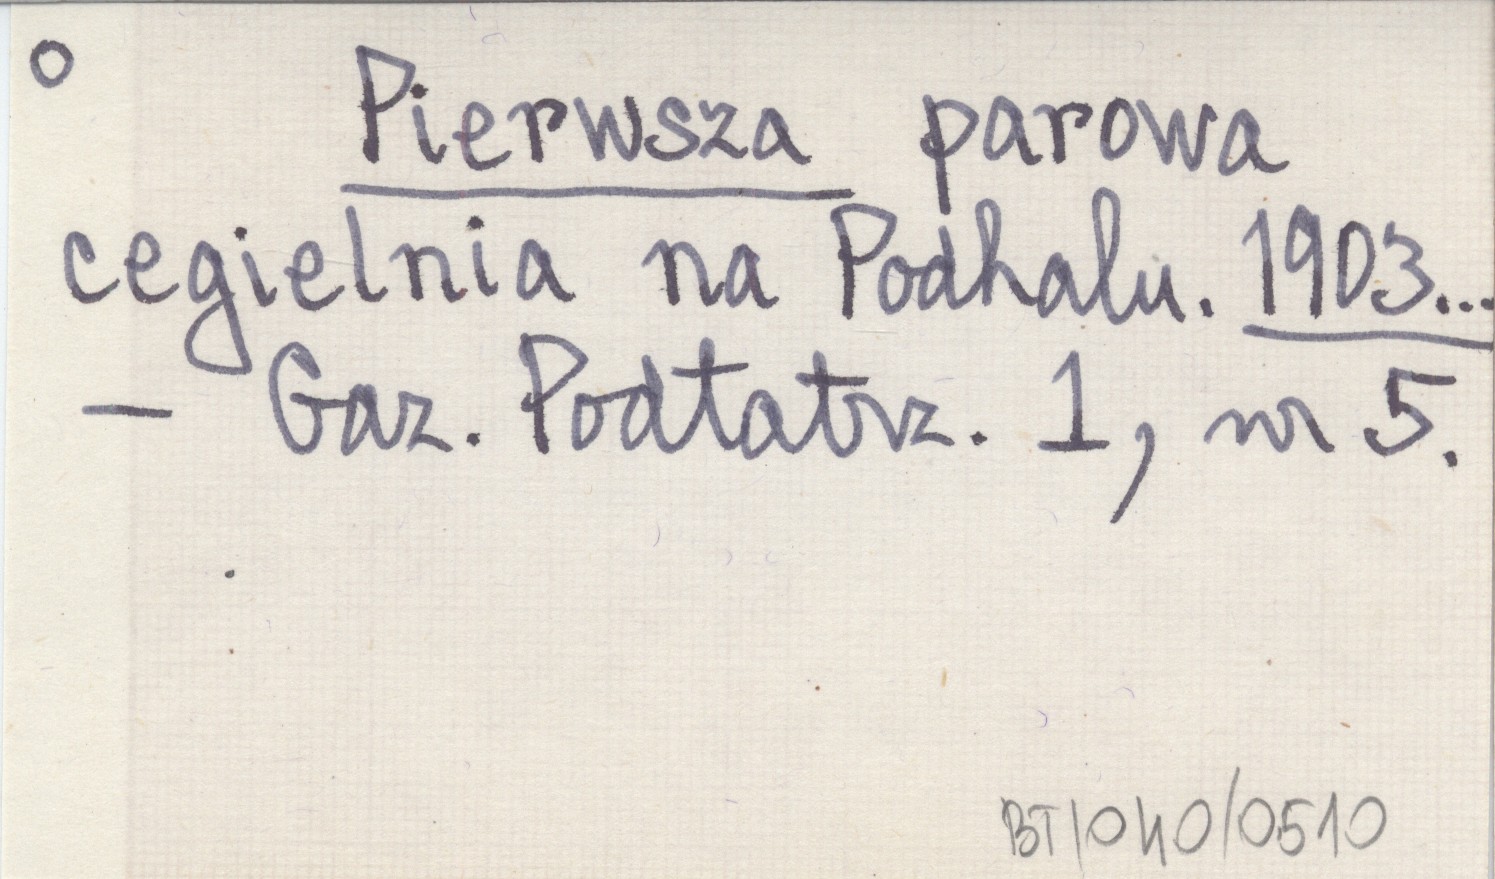 o Pierwsza parowa
cegielnia na Podhalu. 1903...
— Gaz. Podtatrz. 1, nr 5.
BT/040/0510